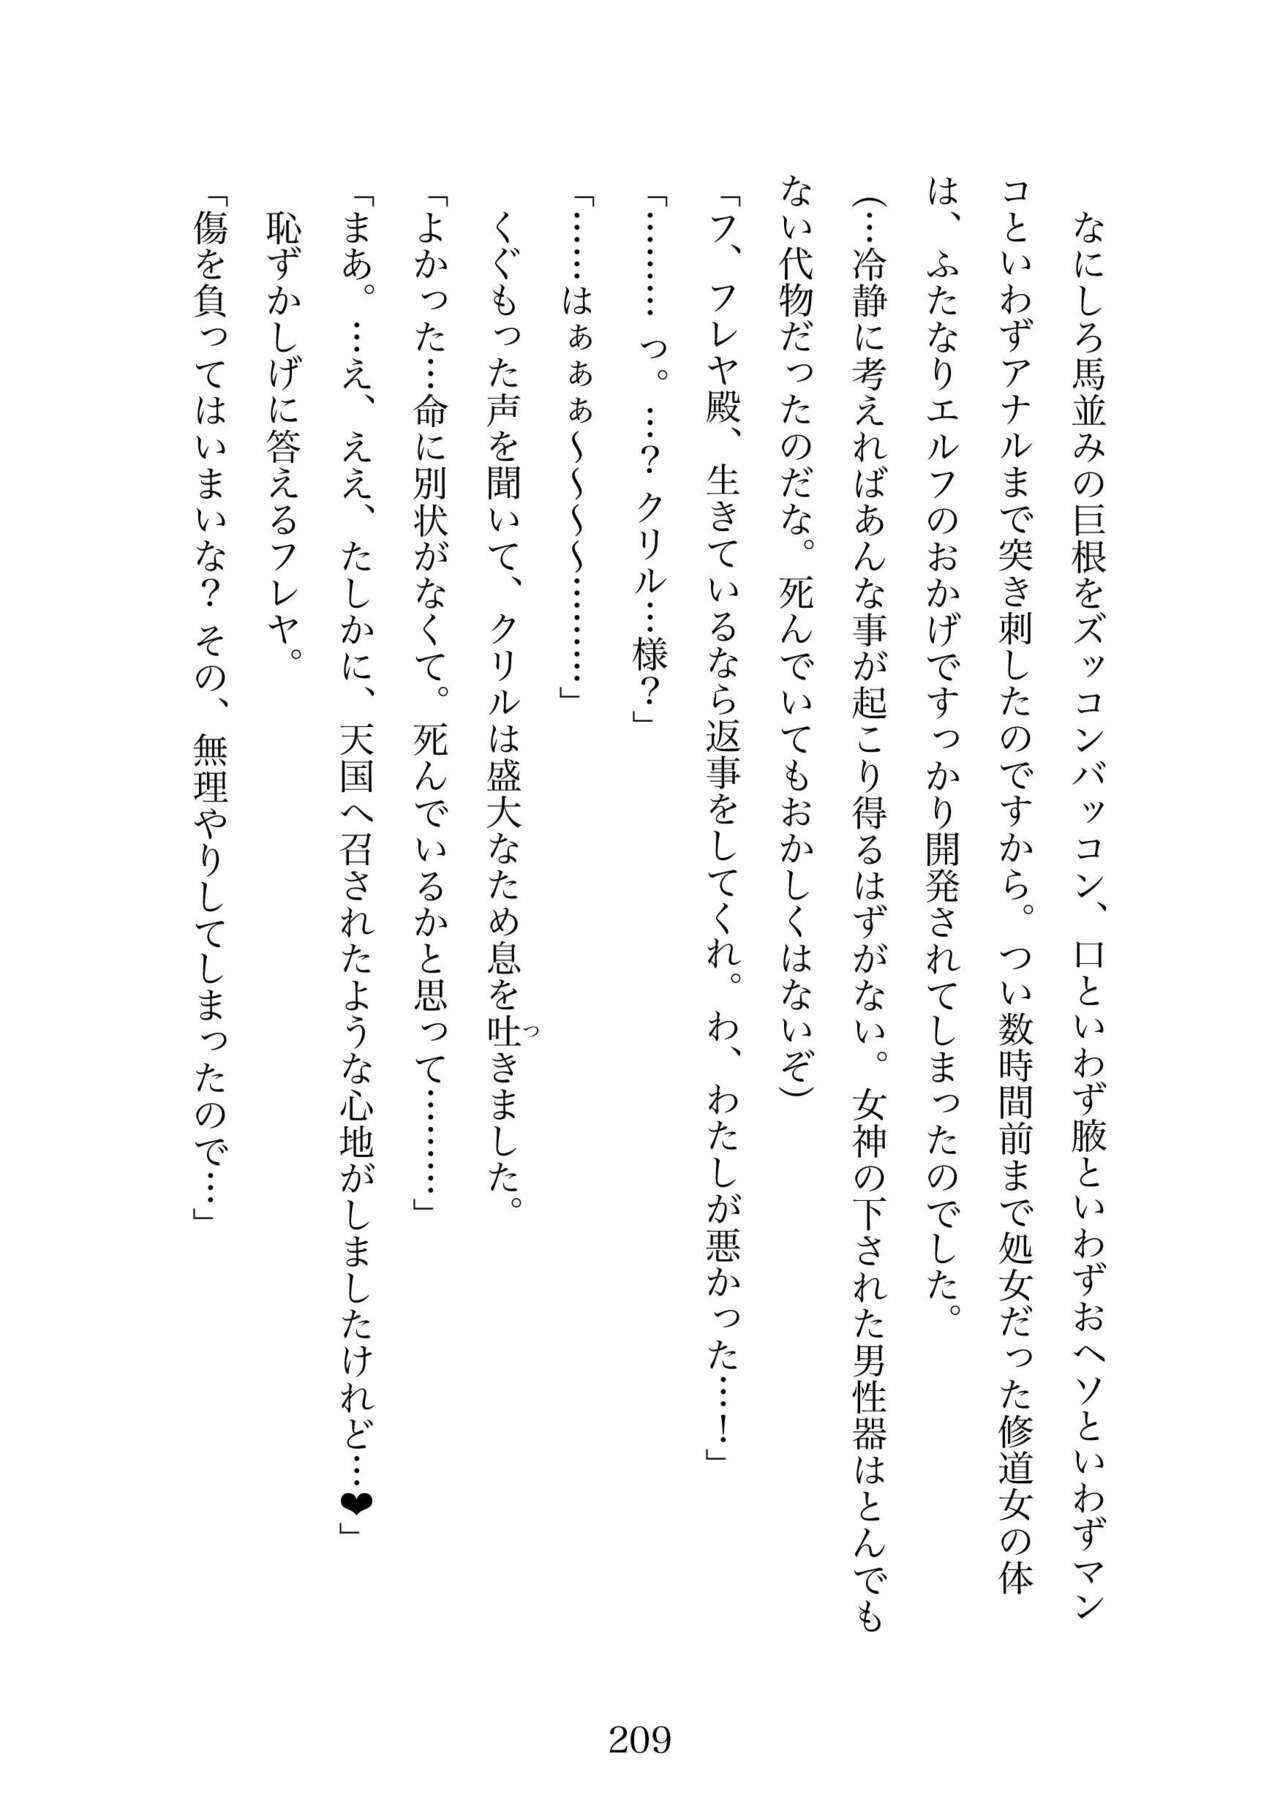 なにしろ馬並みの巨根をズッコンバッコン、口といわず腋といわずおヘソといわずマン
コといわずアナルまで突き刺したのですから。つい数時間前まで処女だった修道女の体
は、ふたなりエルフのおかげですっかり開発されてしまったのでした。
(…冷静に考えればあんな事が起こり得るはずがない。女神の下された男性器はとんでも
ない代物だったのだな。死んでいてもおかしくはないぞ)
「フ、フレヤ殿、生きているなら返事をしてくれ。わ、わたしが悪かった…！」
「……… っ。…？ クリル…様？」
「……はぁぁぁ～～～～………」
くぐもった声を聞いて、クリルは盛大なため息を吐きました。
つ
「よかった…命に別状がなくて。死んでいるかと思って………」
「まあ。…え、ええ、たしかに、天国へ召されたような心地がしましたけれど…❤」
恥ずかしげに答えるフレヤ。
「傷を負ってはいまいな？ その、無理やりしてしまったので…」
209